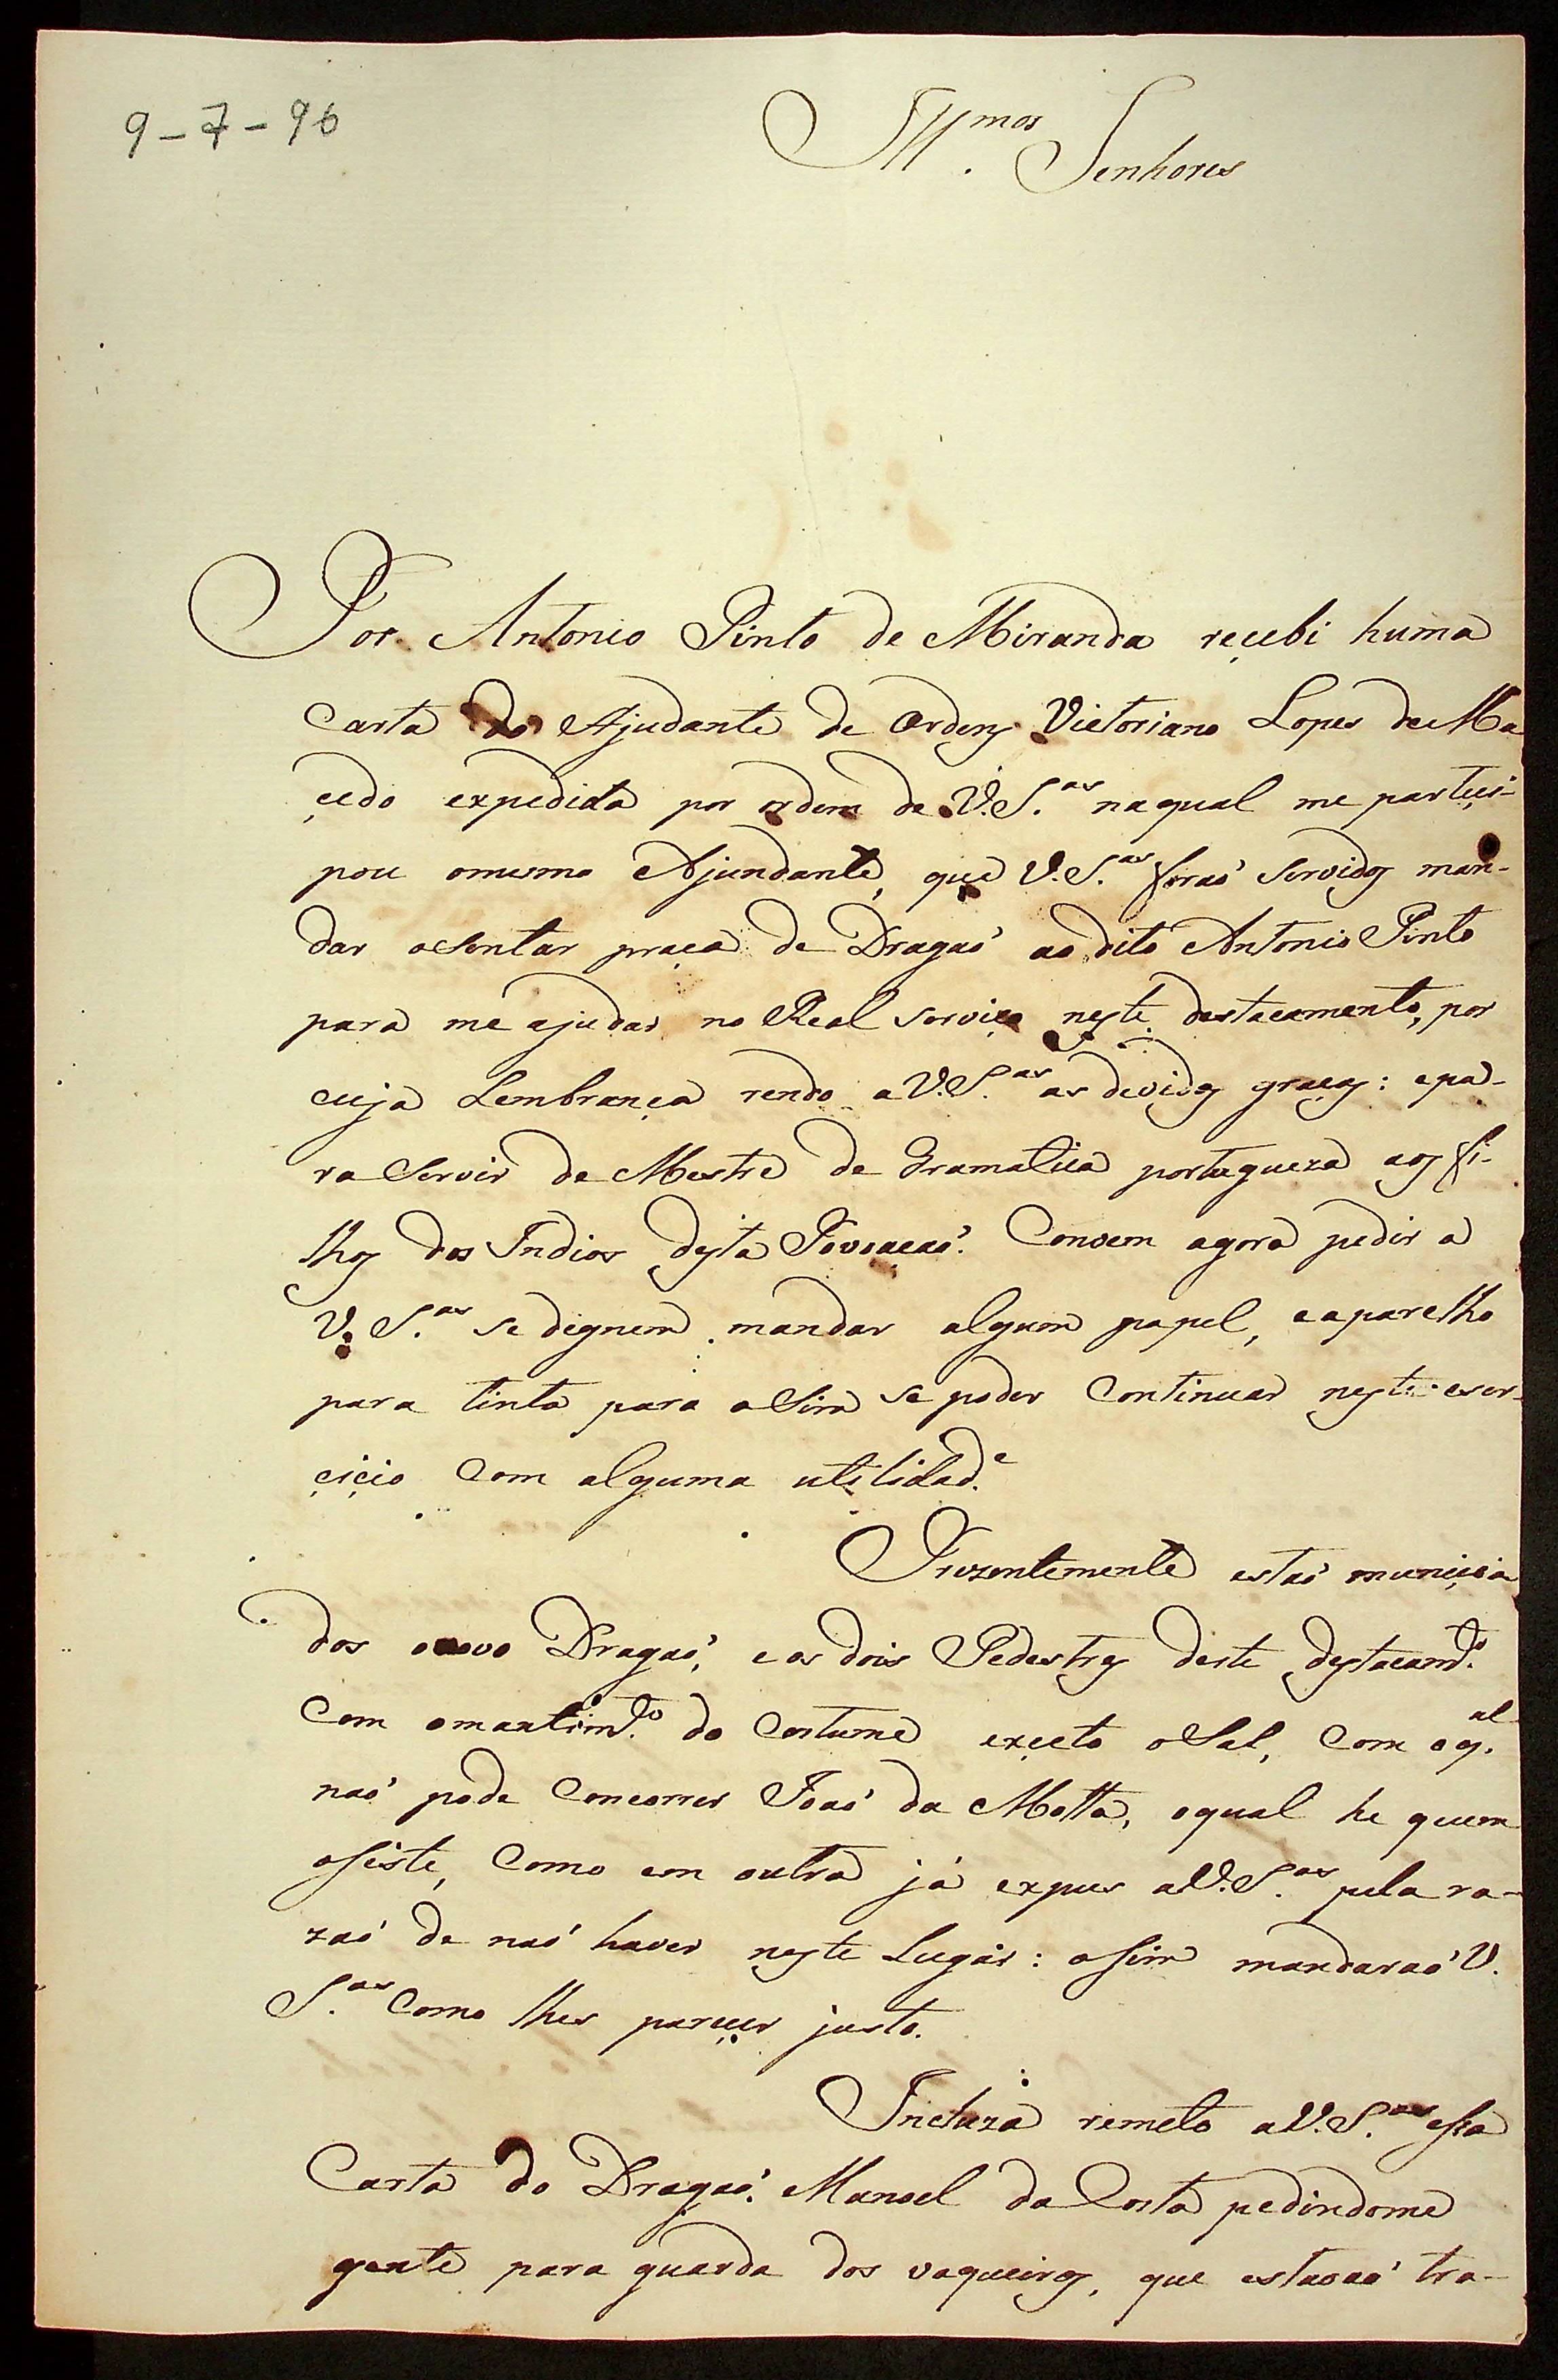 9-7-96
Ill.mos Senhores
Por Antonio Pinto de Miranda reçebi huma
Carta do Ajudante de Ordens Victoriano Lopes de Ma
çedo expedida por ordem de V.S.as na qual me partiçi-
pou omesmo Ajundante, que V.S.as foraõ Servidos man-
dar asentar praça de Dragaõ ao dito Antonio Pinto
para me ajudar no Real serviço neste destacamento, por
cuja Lembrança rendo a V.S.as as devidas graças: epa-
ra Servir de Mestre de Gramatica portugueza aos fi-
lhos dos Indios desta Povoaçaõ. Convem agora pedir a
V.S.as se dignem mandar algum papel, e aparelho
para tinta para asim se poder Continuar neste exer-
çiçio Com alguma utilidad.e
Prezentemente estaõ muniçia
dos onovo Dragaõ, e os dois Pedestres deste destacam.to
Com omantim.to do Costume exçeto oSal, Com oq.al
naõ pode Concorrer Joaõ da Motta, oqual he quem
asiste, Como em outra já expus aV.S.as pela ra-
zaõ de naõ haver neste Lugar: asim mandaraõ V.
S.as Como lhes pareçer justo.
Incluza remeto aV.S.as esta
Carta do Dragaõ Manoel da Costa pedindome
gente para guarda dos vaqueiros, que estavaõ tra-